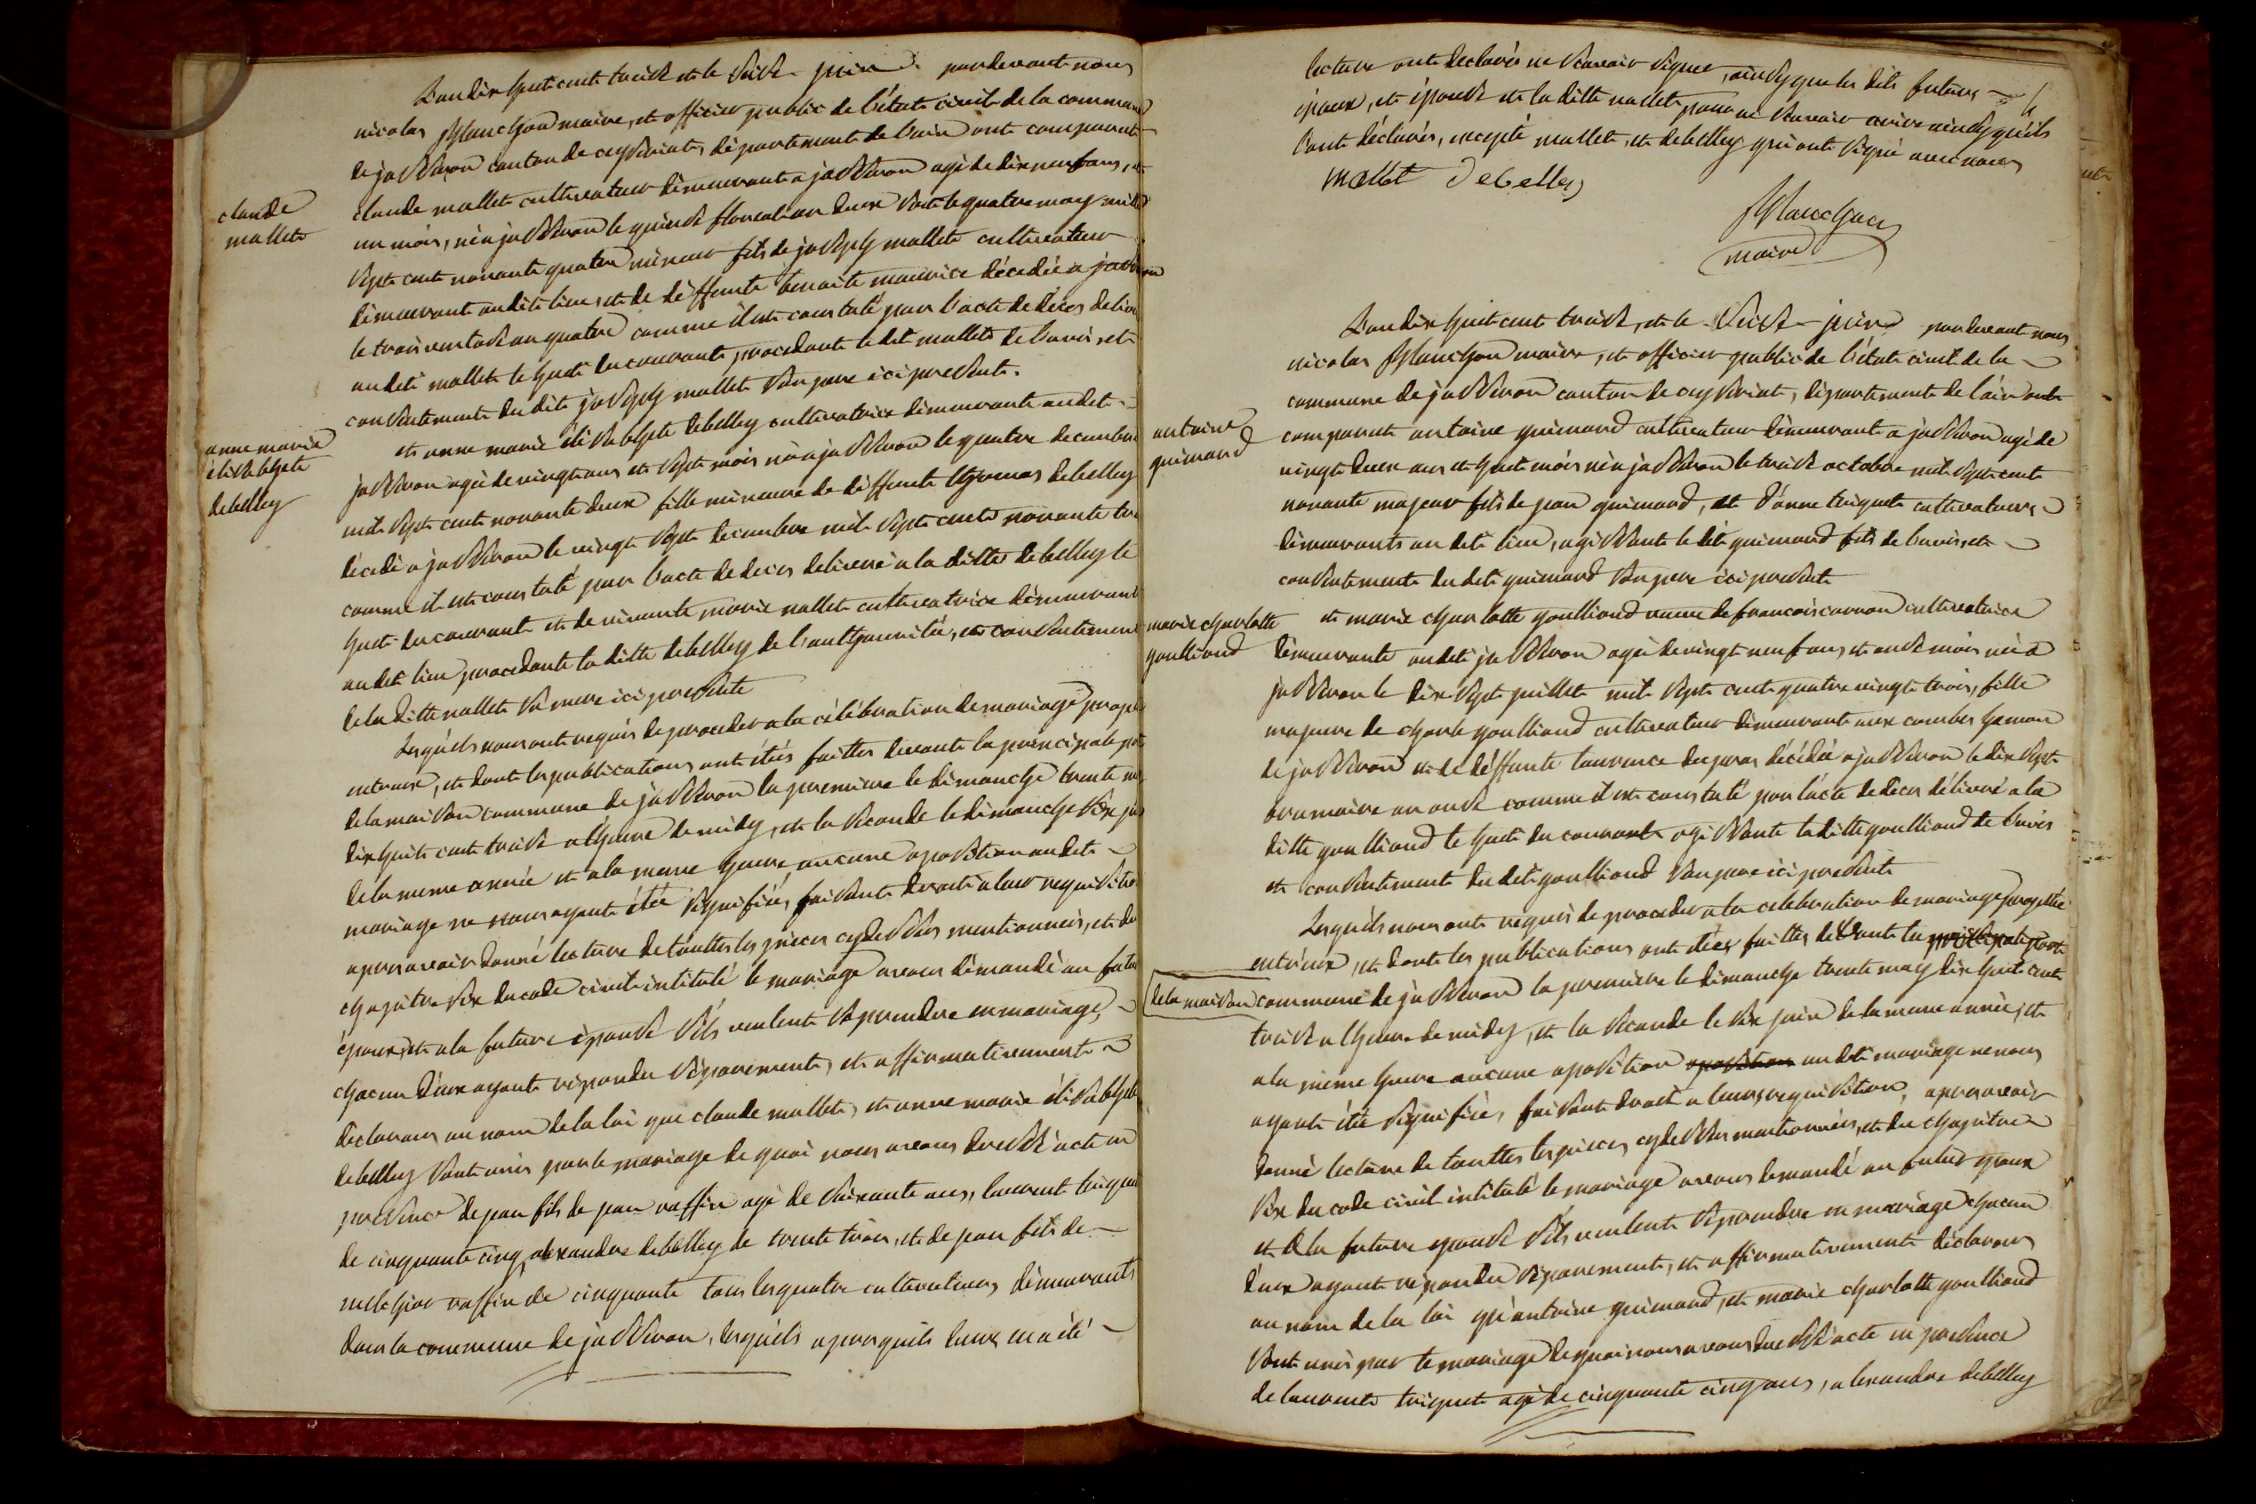 L'an dix huit cent treise et le seise juin pardevant nous
nicolas planchon maire, et officier public de l'état civil de la commune
de jasseron canton de ceyseriat, département de l'ain ont comparut
claude mallet cultivateur démeurant a jasseron agé de dix neuf ans, et
un mois, né a jasseron le quinse floreal an deux soit le quatre may mille
sept cent novante quatre mineur fils de joseph mallet cultivateur
démeurant audit lieu, et de déffunte benoite maurice décédée a jasseron
le trois ventose an quatre comme il est constaté par l'acte de déces delivré
audit mallet le huit du courant, procedant le dit mallet de l'avis, et
consentement du dit joseph mallet son pere ici present.
et anne marie élisabeth debelley cultivatrice démeurante audit
jasseron agé de vingt ans et sept mois né a jasseron le quatre decembre
mil sept cent novante deux fille mineure de déffunt thomas debelley
décédé a jasseron le vingt sept decembre mil sept cent novante
comme il est constaté par l'acte de deces deliveré a la ditte debelley le
huit du courant et de vivante marie vallet cultivatrice démeurant
audit lieu procedante la ditte debelley de l'authaurité, et consentement
de la ditte vallet sa mere ici presente
Lesquels nous ont requis de proceder a la célébration de mariage projetté
entreux, et dont les publications ont étées faittes devant la principale porte
de la maison commune de jasseron la premiere le dimanche trente may
dix huit cent treise a lheure de midy, et la seconde le dimanche six juin
de la meme année et a la meme heure, aucune oposition audit
mariage ne nous ayant étée signifiée, faisant droit a leur requisition
apres avoir donné lecture de touttes les pieces cydessus mentionneés, et du
chapitre six du code civil intitulé le mariage avons démandé au futur
époux, et a la future épouse s'ils veulent se prendre en mariage,
chacun d'eux ayant répondu séparement, et affirmativement
déclarons au nom de la loi que claude mallet, et anne marie élisabeth
debelley sont unis par le mariage de quoi nous avons dressé acte en
presence de jean fils de jean raffin agé de soixante ans, laurent triquet
de cinquante cinq, alexandre debelley de trente trois, et de jean fils de
melchior raffin de cinquante tous les quatre cultivateurs, démeurants
dans la commune de jasseron, lesquels apres quils leurs en a été
claude
mallet
anne marie
élisabeth
debelley
lecture ont declarés ne scavoir signer, ainsy que les dits futurs
époux, et épouse et la ditte vallet pour ne scavoir écrire ainsy qu'ils
l'ont déclarés, excepté mallet, et debelley qui ont signé avec nous
mallet debelley
planchon
maire
L'an dix huit cent treise, et le seise juin pardevant nous
nicolas planchon maire, et officier public de l'état civil de la
commune de jasseron canton de ceyseriat, département de l'ain ont
comparut antoine guimand cultivateur démeurant a jasseron agé de
vingt deux ans et huit mois né a jasseron le treise octobre mil sept cent
novante majeur fils de jean guimand, et d'anne triquet cultivateurs
démeurants audit lieu, agissant le dit guimand fils de l'avis, et
consentement du dit guimand son pere ici present
et marie charlotte goulliand veuve de francois carron cultivatrice
démeurante audit jasseron agé de vingt neuf ans, et onse mois né a
jasseron le dix sept juillet mil sept cent quatre vingt trois, fille
majeure de charle goulliand cultivateur démeurant aux combes hameau
de jasseron et de déffunte laurence décédée a jasseron le dix sept
brumaire an onse comme il est constaté par l'acte de deces délivré a la
ditte goulliand le huit du courant agissante la ditte goulliand de l'avis
et consentement du dit goulliand son pere ici present
Lesquels nous ont requis de proceder a la celebration de mariage projetté
entr'eux, et dont les publications ont étées faittes devant la principale porte
de la maison commune de jasseron la premiere le dimanche trente may dix huit cent
treise a lheure de midy, et la seconde le six juin de la meme année, et
a la meme heure aucune oposition oposition audit mariage ne nous
ayant été signifiée, faisant droit a leurs requisition, apres avoir
donné lecture de touttes les pieces cydessus mentionneés, et du chapitre
six du code civil intitulé le mariage avons demandé au futur epoux
et a la future epouse s'ils veulent se prendre en mariage chacun
d'eux ayant répondu séparement, et affirmativement déclarons
au nom de la loi qu'antoine guimand, et marie charlotte goulliand
sont unis par le mariage de quoi nous avons dressé acte en presence
de laurent triquet agé de cinquante cinq ans, alexandre debelley
antoine
guimand
marie charlotte
goulliand